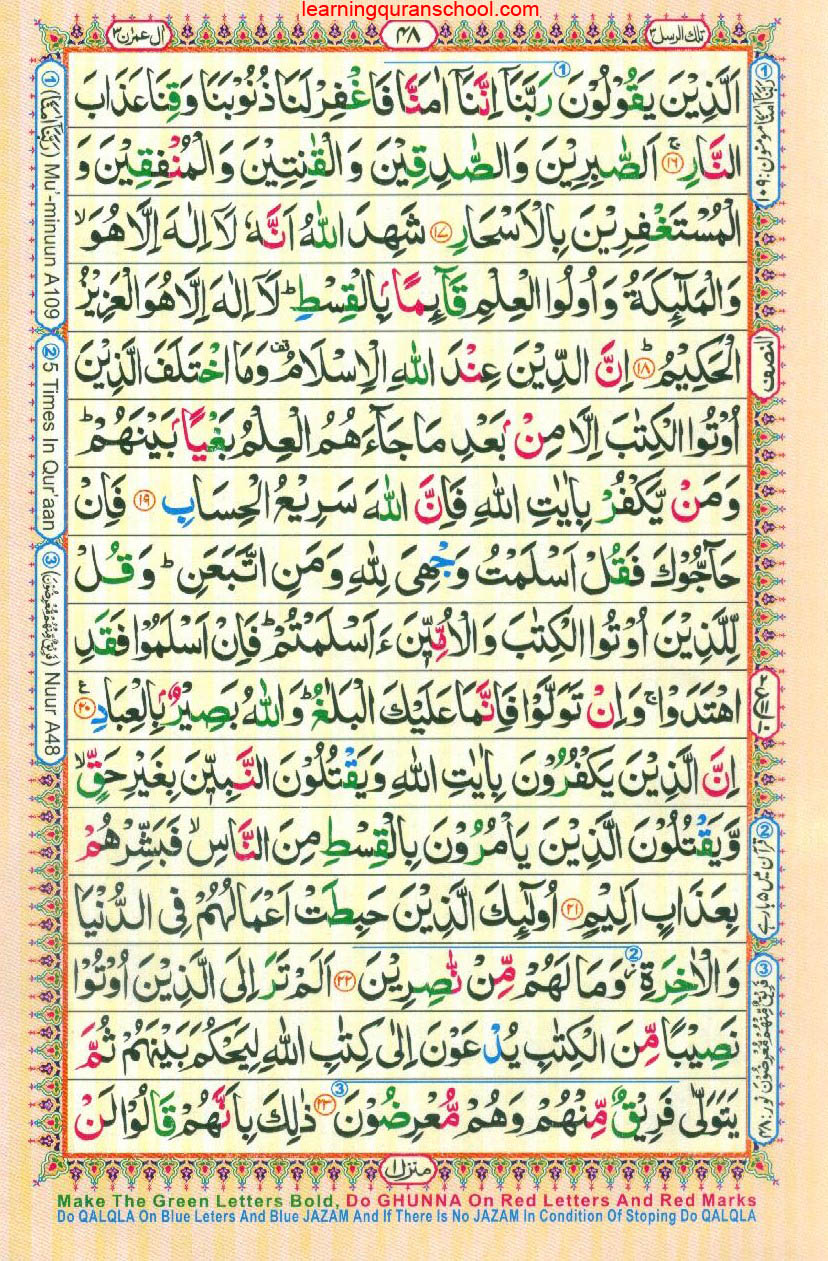 learningquranschool.com
تلك الرسل ۳
۴۸
اٰل عمرٰن ۳
اَلَّذِيْنَ يَقُوْلُوْنَ رَبَّنَاۤ اِنَّنَاۤ اٰمَنَّا فَاغْفِرْ لَنَا ذُنُوْبَنَا وَقِنَا عَذَابَ
النَّارِ ۚ ﴿۱۶﴾ اَلصّٰبِرِيْنَ وَالصّٰدِقِيْنَ وَالْقٰنِتِيْنَ وَالْمُنْفِقِيْنَ وَ
الْمُسْتَغْفِرِيْنَ بِالْاَسْحَارِ ﴿۱۷﴾ شَهِدَ اللّٰهُ اَنَّهٗ لَاۤ اِلٰهَ اِلَّا هُوَ ۙ
وَالْمَلٰٓئِكَةُ وَاُولُوا الْعِلْمِ قَآئِمًا ۢ بِالْقِسْطِ ؕ لَاۤ اِلٰهَ اِلَّا هُوَ الْعَزِيْزُ
الْحَكِيْمُ ؕ ﴿۱۸﴾ اِنَّ الدِّيْنَ عِنْدَ اللّٰهِ الْاِسْلَامُ قف وَمَا اخْتَلَفَ الَّذِيْنَ
اُوْتُوا الْكِتٰبَ اِلَّا مِنْ ۢ بَعْدِ مَا جَآءَهُمُ الْعِلْمُ بَغْيًا ۢ بَيْنَهُمْ ؕ
وَمَنْ يَّكْفُرْ بِاٰيٰتِ اللّٰهِ فَاِنَّ اللّٰهَ سَرِيْعُ الْحِسَابِ ﴿۱۹﴾ فَاِنْ
حَآجُّوْكَ فَقُلْ اَسْلَمْتُ وَجْهِىَ لِلّٰهِ وَمَنِ اتَّبَعَنِ ؕ وَقُلْ
لِّلَّذِيْنَ اُوْتُوا الْكِتٰبَ وَالْاُمِّيّٖنَ ءَاَسْلَمْتُمْ ؕ فَاِنْ اَسْلَمُوْا فَقَدِ
اهْتَدَوْا ۚ وَاِنْ تَوَلَّوْا فَاِنَّمَا عَلَيْكَ الْبَلٰغُ ؕ وَاللّٰهُ بَصِيْرٌ ۢ بِالْعِبَادِ ﴿۲۰﴾ ع
اِنَّ الَّذِيْنَ يَكْفُرُوْنَ بِاٰيٰتِ اللّٰهِ وَيَقْتُلُوْنَ النَّبِيّٖنَ بِغَيْرِ حَقٍّ ۙ
وَّيَقْتُلُوْنَ الَّذِيْنَ يَاْمُرُوْنَ بِالْقِسْطِ مِنَ النَّاسِ ۙ فَبَشِّرْهُمْ
بِعَذَابٍ اَلِيْمٍ ﴿۲۱﴾ اُولٰٓئِكَ الَّذِيْنَ حَبِطَتْ اَعْمَالُهُمْ فِى الدُّنْيَا
وَالْاٰخِرَةِ ؗ وَمَا لَهُمْ مِّنْ نّٰصِرِيْنَ ﴿۲۲﴾ اَلَمْ تَرَ اِلَى الَّذِيْنَ اُوْتُوْا
نَصِيْبًا مِّنَ الْكِتٰبِ يُدْعَوْنَ اِلٰى كِتٰبِ اللّٰهِ لِيَحْكُمَ بَيْنَهُمْ ثُمَّ
يَتَوَلّٰى فَرِيْقٌ مِّنْهُمْ وَهُمْ مُّعْرِضُوْنَ ﴿۲۳﴾ ذٰلِكَ بِاَنَّهُمْ قَالُوْا لَنْ
① رَبَّنَاۤ اٰمَنَّا مؤمنون : ۱۰۹
النصف
② قرآن میں ۵ بار ہے
③ فَرِيْقٌ مِّنْهُمْ مُّعْرِضُوْنَ نور : ۴۸
① (رَبَّنَاۤ اٰمَنَّا) Mu'-minuun A109
② 5 Times In Qur'aan
③ (فَرِيْقٌ مِّنْهُمْ مُّعْرِضُوْنَ) Nuur A48
منزل ۱
Make The Green Letters Bold, Do GHUNNA On Red Letters And Red Marks
Do QALQLA On Blue Leters And Blue JAZAM And If There Is No JAZAM In Condition Of Stoping Do QALQLA